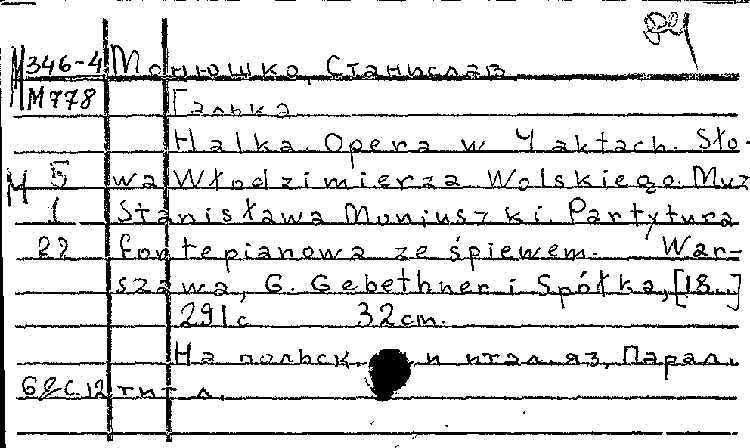 М346-4 Монюшко, Станислав
М778 Галька
Halka. Opera w 4 aktach. Sło-
М 5 wa Włodzimierza Wolskiego. Muz
1 Stanisława Moniuszki. Partytura
22 fortepianowa ze śpiewem. War-
szawa, G. Gebethner i Spółka, [18..]
291 c 32 cm.
На польск. и итал. яз. Парал.
тит л.